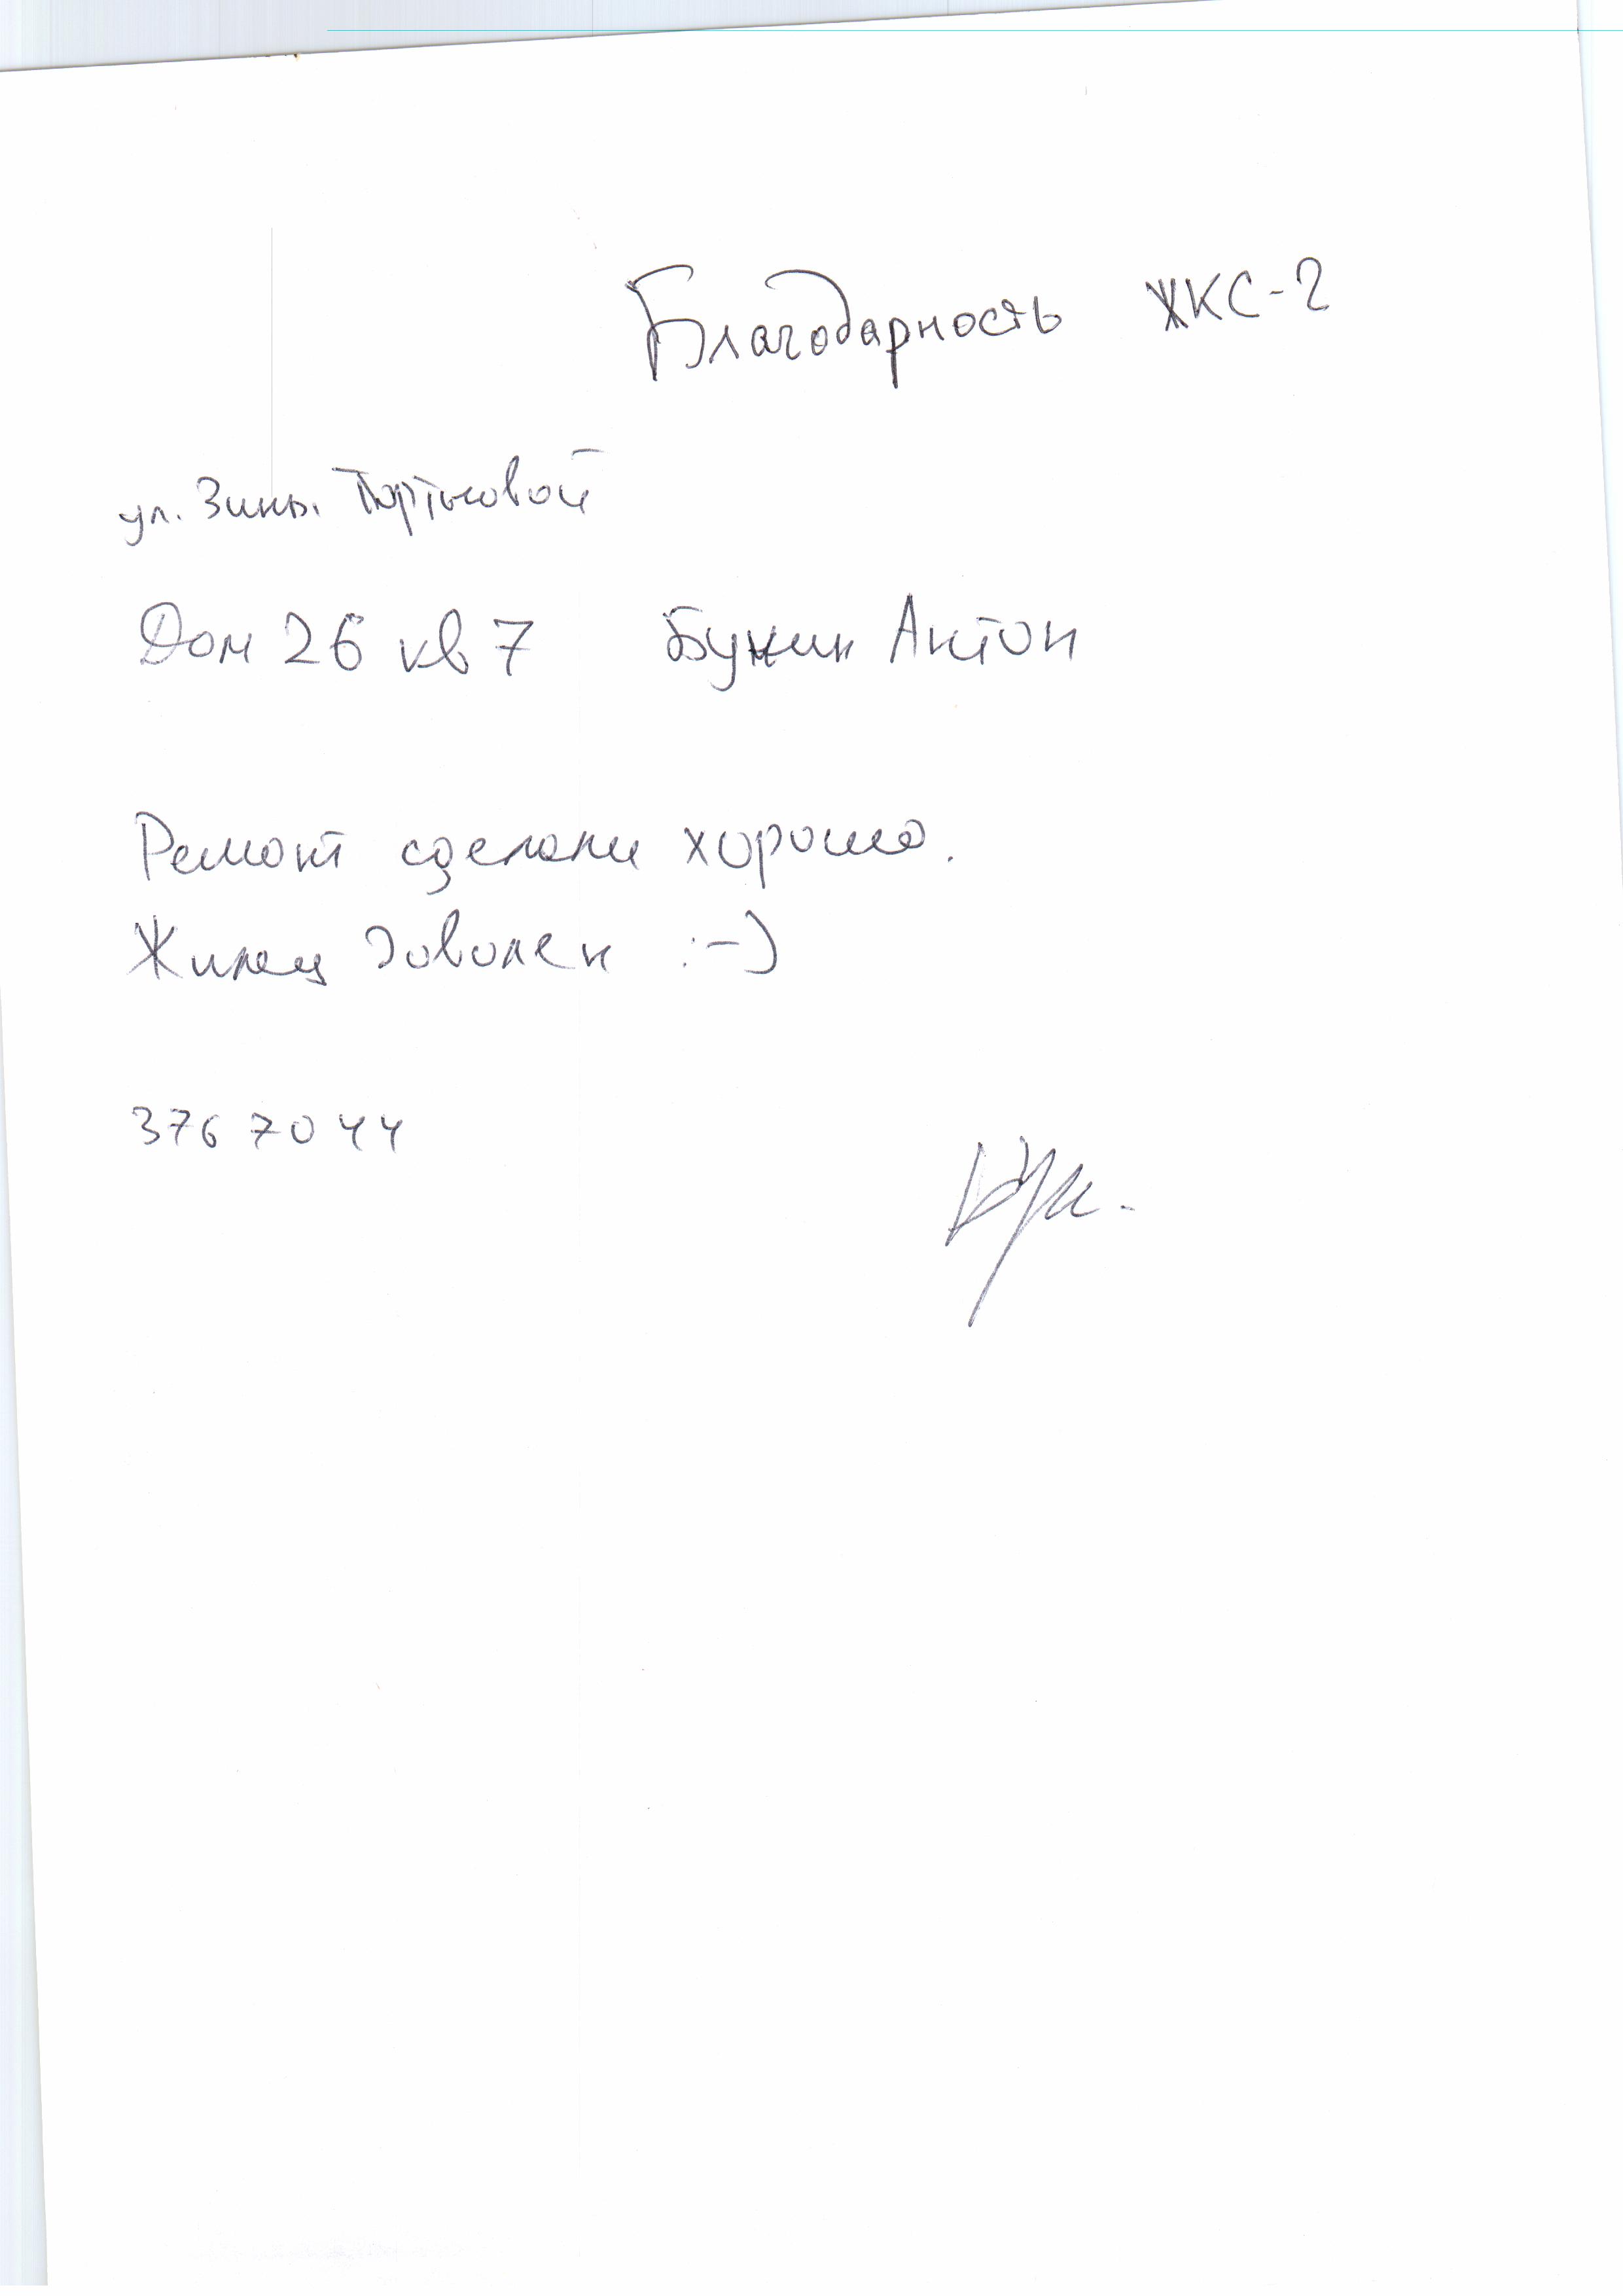 Благодарность ЖКС-2
ул. Зины Портновой
Дом 26 кв 7 Бунин Антон
Ремонт сделали хорошо.
Жилец доволен :-)
376 70 44